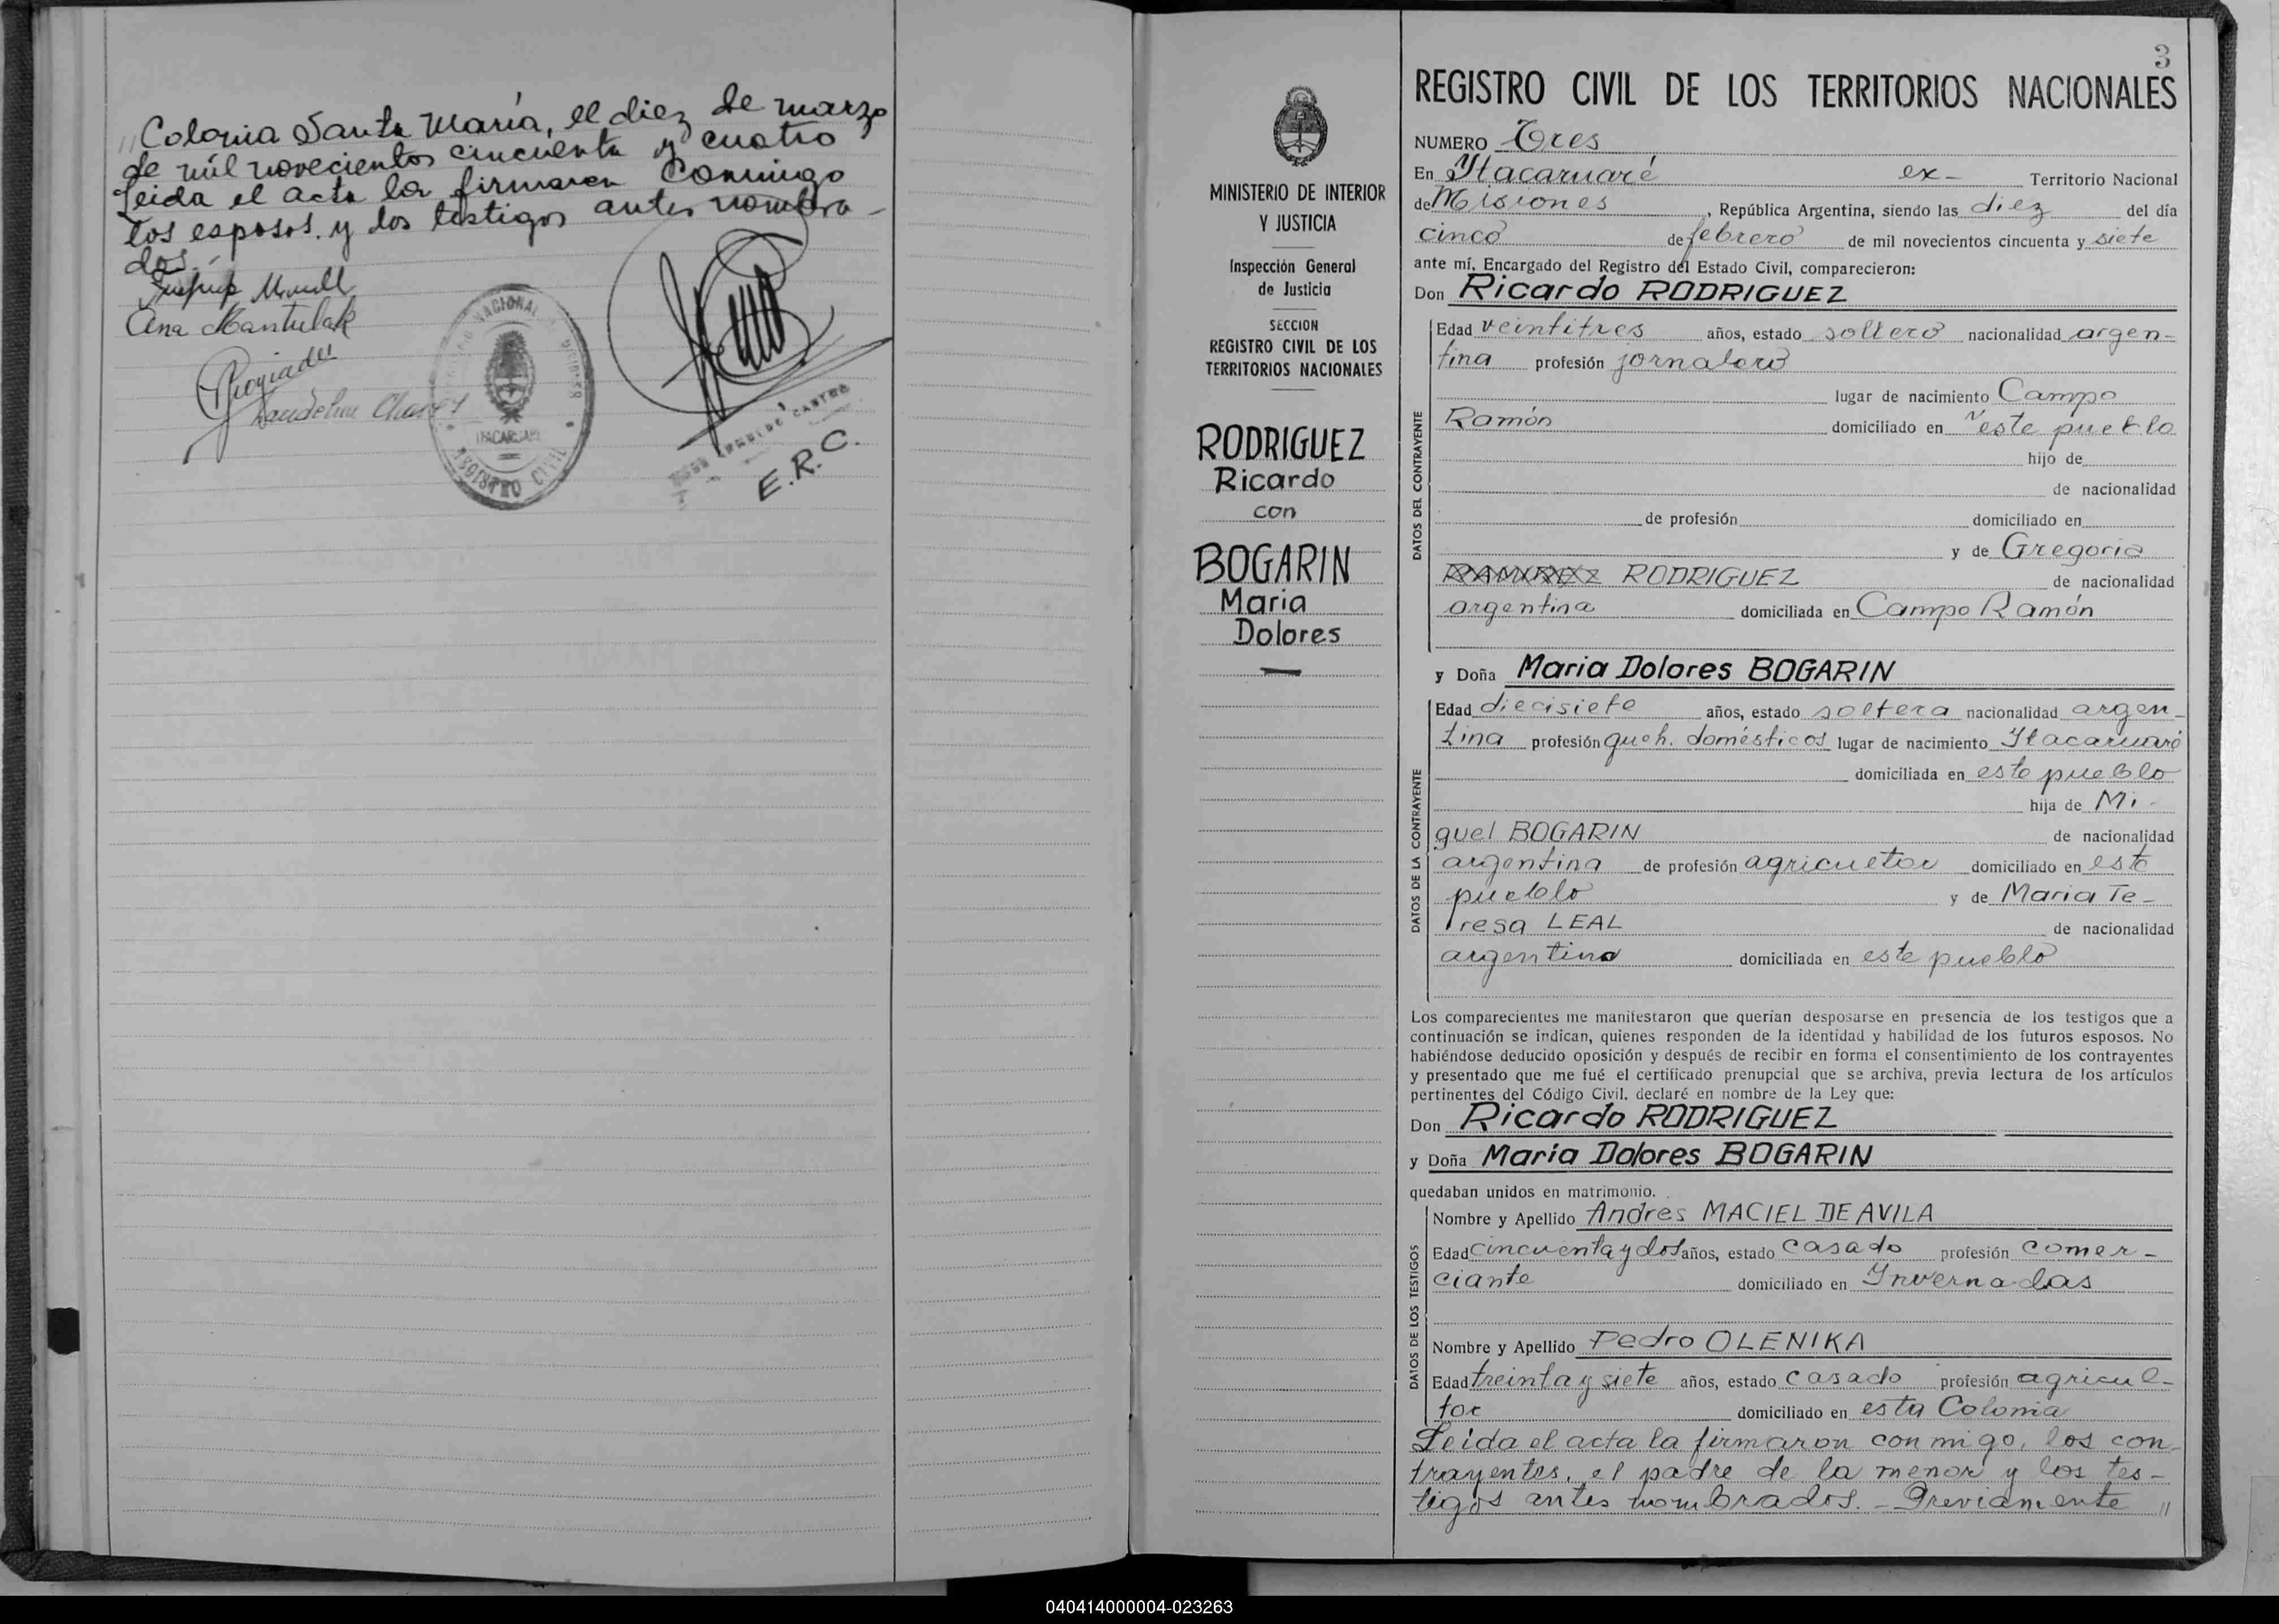 " Colonia Santa María, el diez de marzo
de mil novecientos cincuenta y cuatro
Leida el acta la firmaron conmigo
los esposos y los testigos antes nombra-
dos.-
Ana Mantulak
NACIONAL
ITACARUARE
REGISTRO CIVIL
CASTRO
E.R.C.
3
MINISTERIO DE INTERIOR
Y JUSTICIA
Inspección General
de Justicia
SECCION
REGISTRO CIVIL DE LOS
TERRITORIOS NACIONALES
RODRIGUEZ
Ricardo
con
BOGARIN
Maria
Dolores
REGISTRO CIVIL DE LOS TERRITORIOS NACIONALES
NUMERO Tres
En Itacaruaré ex- Territorio Nacional
de Misiones, República Argentina, siendo las diez del día
cinco de febrero de mil novecientos cincuenta y siete
ante mí, Encargado del Registro del Estado Civil, comparecieron:
Don Ricardo RODRIGUEZ
DATOS DEL CONTRAYENTE
Edad veintitres años, estado soltero nacionalidad argen-
tina profesión jornalero
lugar de nacimiento Campo
Ramón domiciliado en este pueblo
hijo de
de nacionalidad
de profesión domiciliado en
y de Gregoria
RODRIGUEZ de nacionalidad
argentina domiciliada en Campo Ramón
y Doña Maria Dolores BOGARIN
DATOS DE LA CONTRAYENTE
Edad diecisiete años, estado soltera nacionalidad argen-
tina profesión queh. domésticos lugar de nacimiento Itacaruaré
domiciliada en este pueblo
hija de Mi-
guel BOGARIN de nacionalidad
argentina de profesión agricultor domiciliado en este
pueblo y de Maria Te-
resa LEAL de nacionalidad
argentina domiciliada en este pueblo
Los comparecientes me manifestaron que querían desposarse en presencia de los testigos que a
continuación se indican, quienes responden de la identidad y habilidad de los futuros esposos. No
habiéndose deducido oposición y después de recibir en forma el consentimiento de los contrayentes
y presentado que me fué el certificado prenupcial que se archiva, previa lectura de los artículos
pertinentes del Código Civil, declaré en nombre de la Ley que:
Don Ricardo RODRIGUEZ
y Doña Maria Dolores BOGARIN
quedaban unidos en matrimonio.
DATOS DE LOS TESTIGOS
Nombre y Apellido Andres MACIEL DE AVILA
Edad cincuenta y dos años, estado casado profesión comer-
ciante domiciliado en Invernadas
Nombre y Apellido Pedro OLENIKA
Edad treinta y siete años, estado casado profesión agricul-
tor domiciliado en esta Colonia
Leida el acta la firmaron conmigo, los con-
trayentes, el padre de la menor y los tes-
tigos antes nombrados.- Previamente "
040414000004-023263